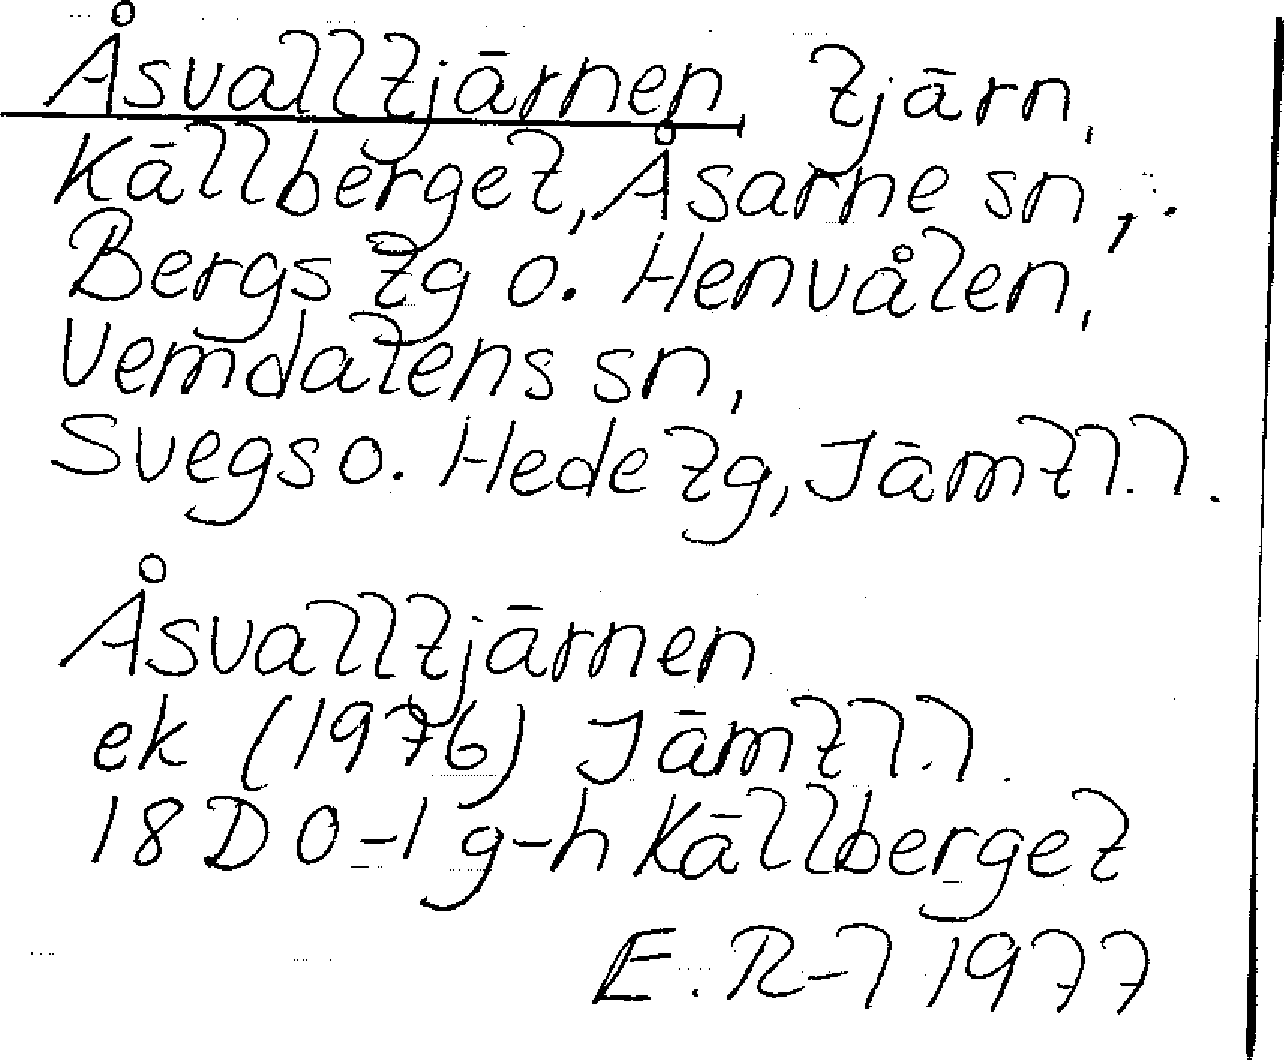 Åsvalltjärnen tjärn,
Källberget, Åsarne sn,
Bergs tg o. Henvålen,
Vemdalens sn,
Svegs o. Hede tg, Jämtl.
Åsvalltjärnen
ek (1976) Jämtl.
18D 0-1 g-h Källberget
E. R-l 1977